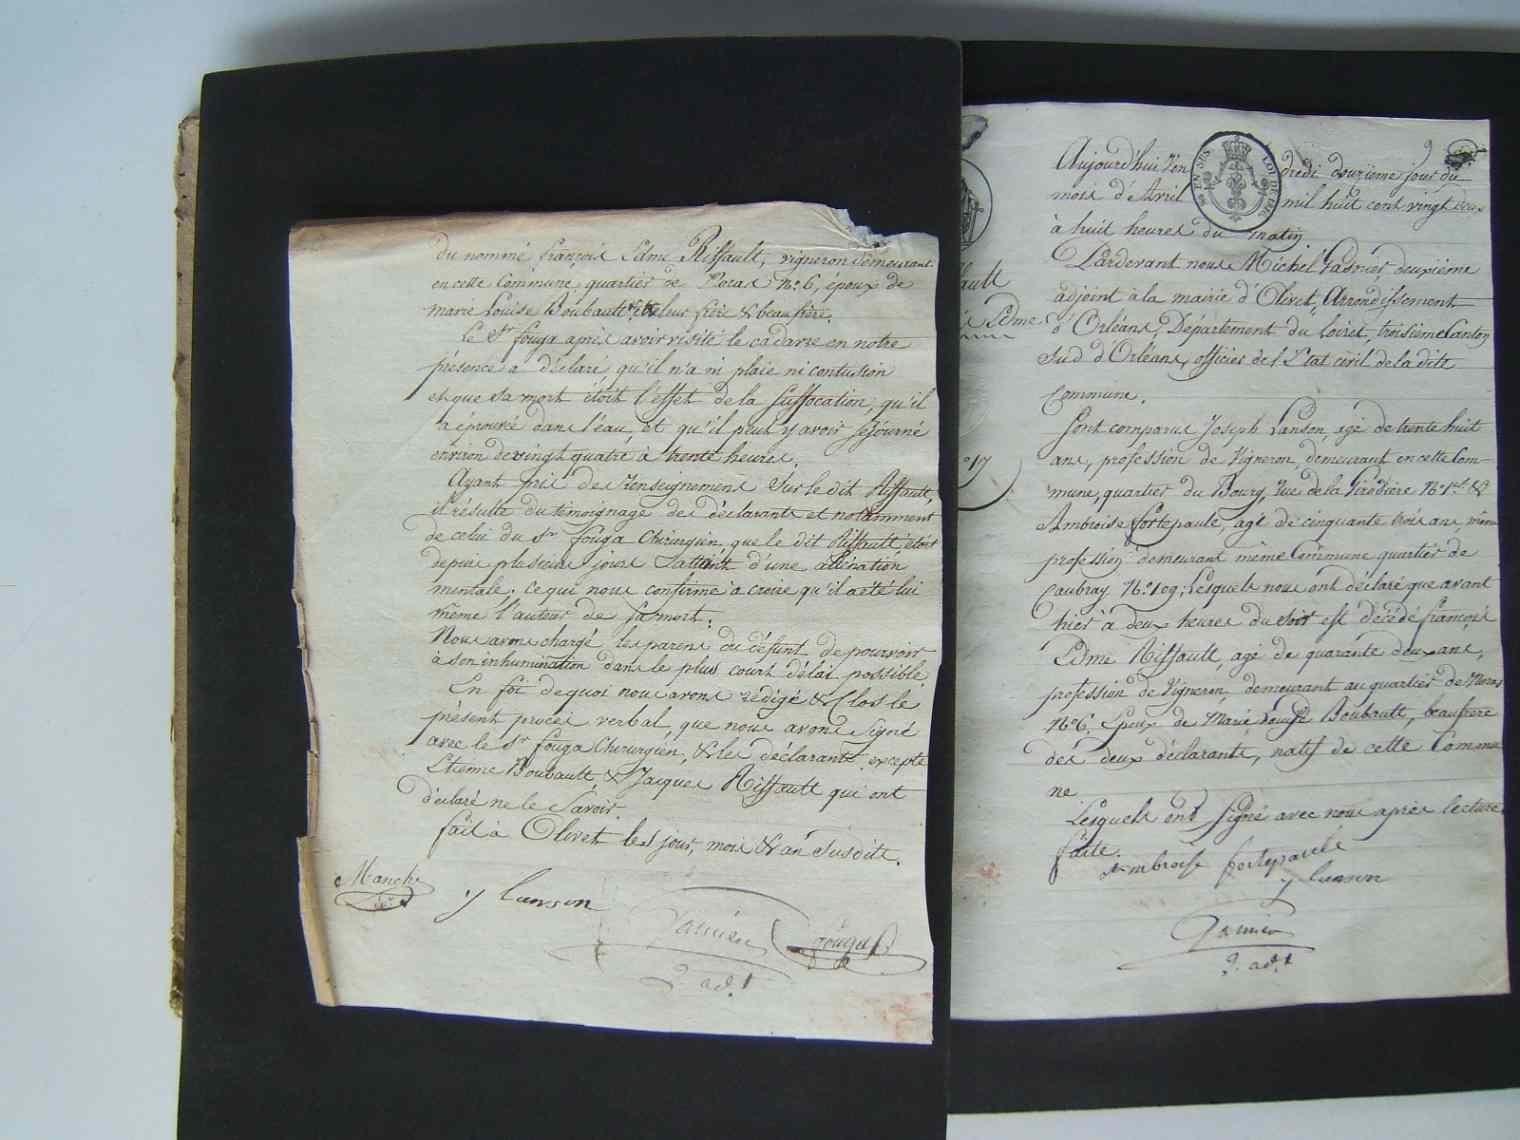 du nommé françois Edme Riffault, vigneron demeurant
en cette Commune, quartier de Noras N.° 6, époux de
marie Louise Boubault, leur frère & beaufrère.
Le Sr. fouga après avoir visité le cadavre en notre
présence a déclaré qu'il n'a ni plaie ni contusion
et que sa mort étoit l'effet de la suffocation, qu'il
a éprouvée dans l'eau, et qu'il peut y avoir séjourné
environ de vingt quatre à trente heures.
Ayant pris des renseignemens sur le dit Riffault,
il résulte du témoignage des déclarants et notamment
de celui du Sr. fouga Chirurgien, que le dit Riffault étoit
depuis plusieurs jours attaint d'une alliénation
mentale. ce qui nous confirme à croire qu'il a été lui
même l'auteur de sa mort.
Nous avons chargé les parens du défunt de pourvoir
à son inhumination dans le plus court délai possible
En foi de quoi nous avons rédigé & Clos le
présent procès verbal, que nous avons signé
avec le Sr. fouga Chirurgien, & les déclarants excepté
Etienne Boubault & Jacques Riffault qui ont
déclaré ne le Savoir.
fait à Olivet les jour, mois & an susdits.
Manche
J lanson
Garnier
fouga
2. adt.
ault
Edme
17
9
Aujourd'hui Ven dredi douzième jour du
EN SUS LOI DE 1816
mois d'Avril mil huit cent vingt deux
à huit heures du matin
Pardevant nous Michel Garnier deuxième
adjoint à la mairie d'Olivet, Arrondissement
d'Orléans, Département du Loiret, troisième Canton
Sud d'Orléans, officier de l'Etat civil de la dite
Commune.
Sont comparus Joseph Lanson, agé de trente huit
ans, profession de Vigneron, demeurant en cette Com-
mune, quartier du Bourg, Rue de la N.° 1er &
Ambroise fortepaule, agé de cinquante trois ans même
profession demeurant même Commune quartier de
Caubray N.° 109; lesquels nous ont déclaré que avant
hier à deux heures du soir est décédé françois
Edme Riffault, agé de quarante deux ans,
profession de Vigneron, demeurant au quartier de Noras
N.° 6. Epoux de Marie Louise Boubault, beaufrere
des deux déclarants, natif de cette Commu
ne
Lesquels ont signé avec nous après lecture
faite.
Ambroise fortepaule
J lanson
Garnier
2. adt.